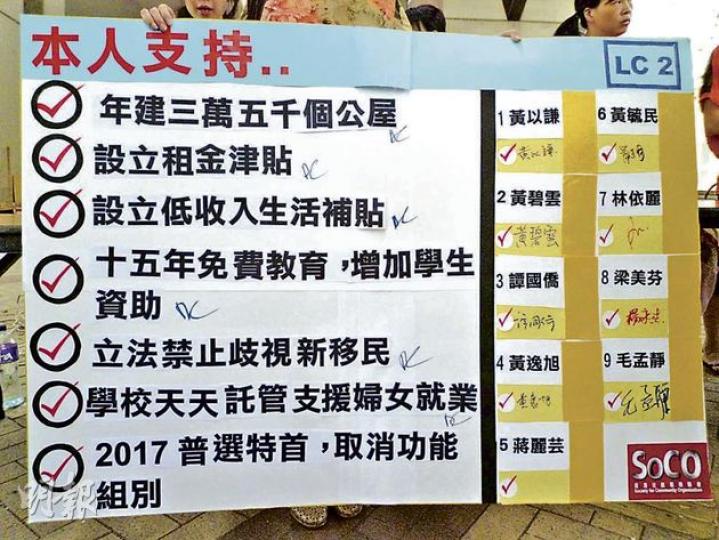 本人支持..
LC 2
年建三萬五千個公屋
設立租金津貼
設立低收入生活補貼
十五年免費教育，增加學生
資助
立法禁止歧視新移民
學校天天託管支援婦女就業
2017 普選特首，取消功能
組別
1 黃以謙
2 黃碧雲
黃碧雲
3 譚國僑
4 黃逸旭
5 蔣麗芸
6 黃毓民
7 林依麗
8 梁美芬
9 毛孟靜
SoCO
Society for Community Organization
明報